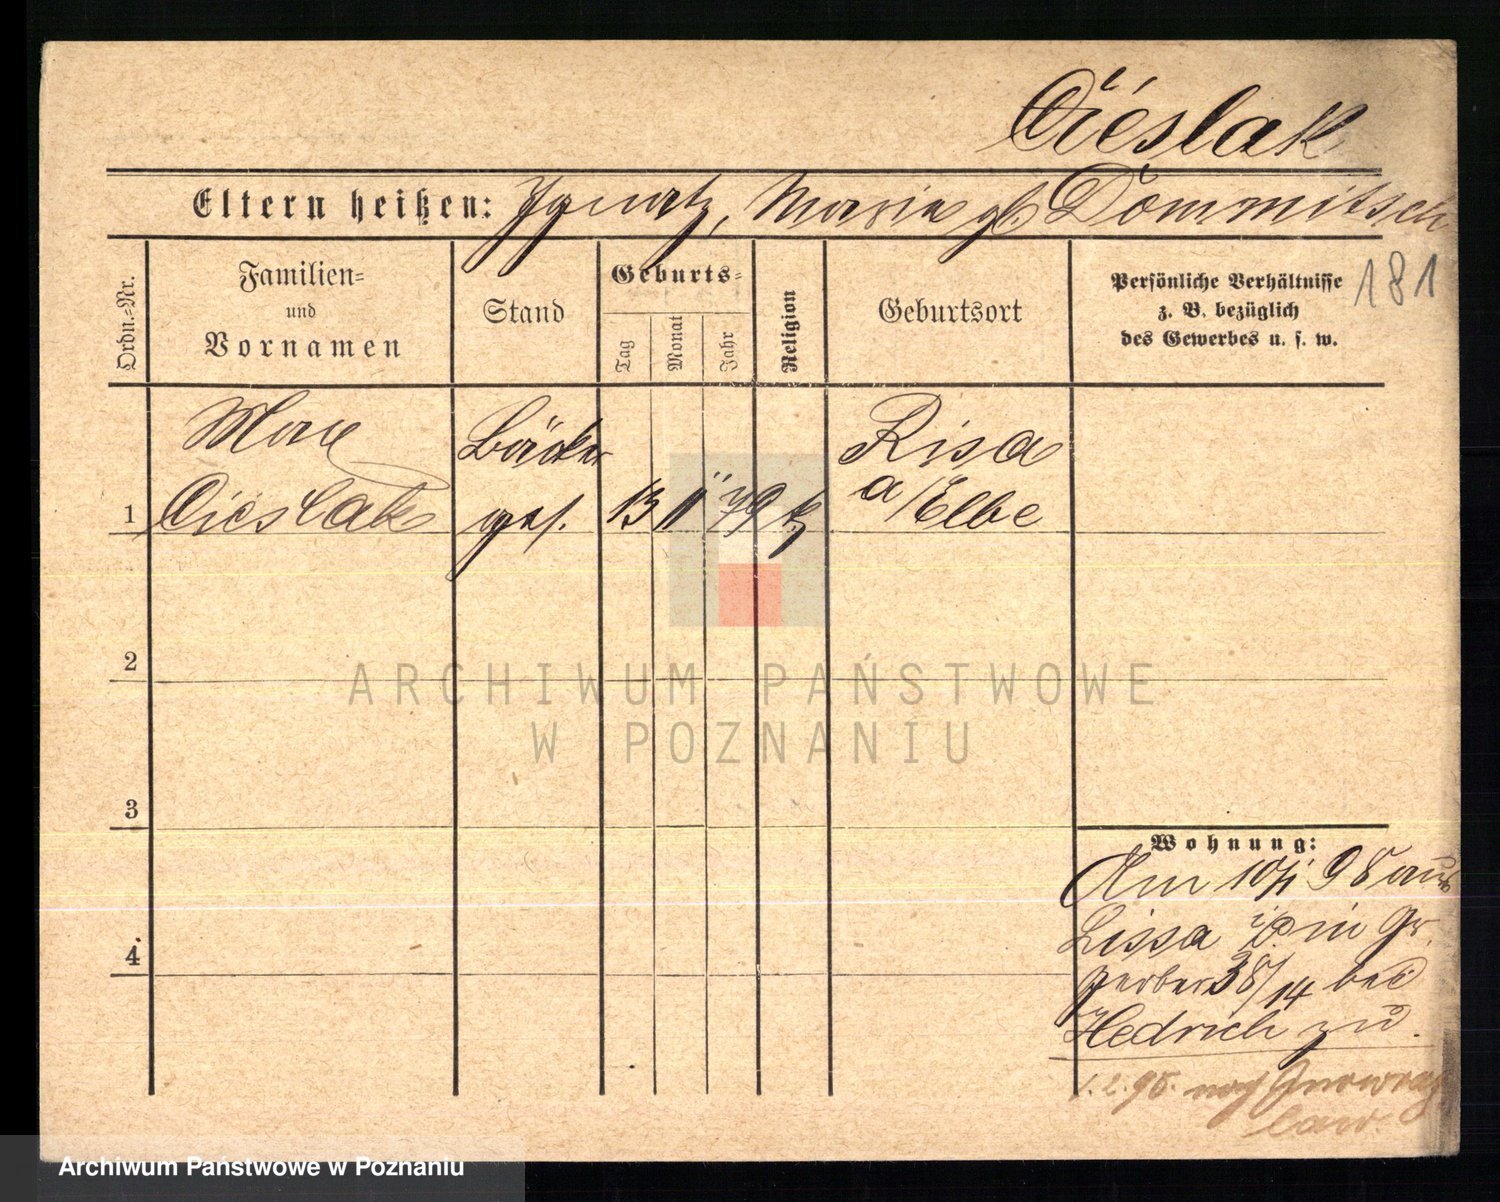 Cieslak
Eltern heißen: Ignatz, Maria gb Dommitsch
181
Ordn.-Nr.
Familien-
und
Vornamen
Stand
Geburts-
Tag
Monat
Jahr
Religion
Geburtsort
Persönliche Verhältnisse
z. B. bezüglich
des Gewerbes u. s. w.
Max
Cieslak
Bäcker
ges.
13
11
79
k
Risa
a/Elbe
1
2
3
4
Wohnung:
Am 10/1 98 aus
Lissa in Gr.
Gerber 38/14 bei
Hedrich zu.
1.2.98. nach Inowraz
law.
ARCHIWUM PAŃSTWOWE
W POZNANIU
Archiwum Państwowe w Poznaniu